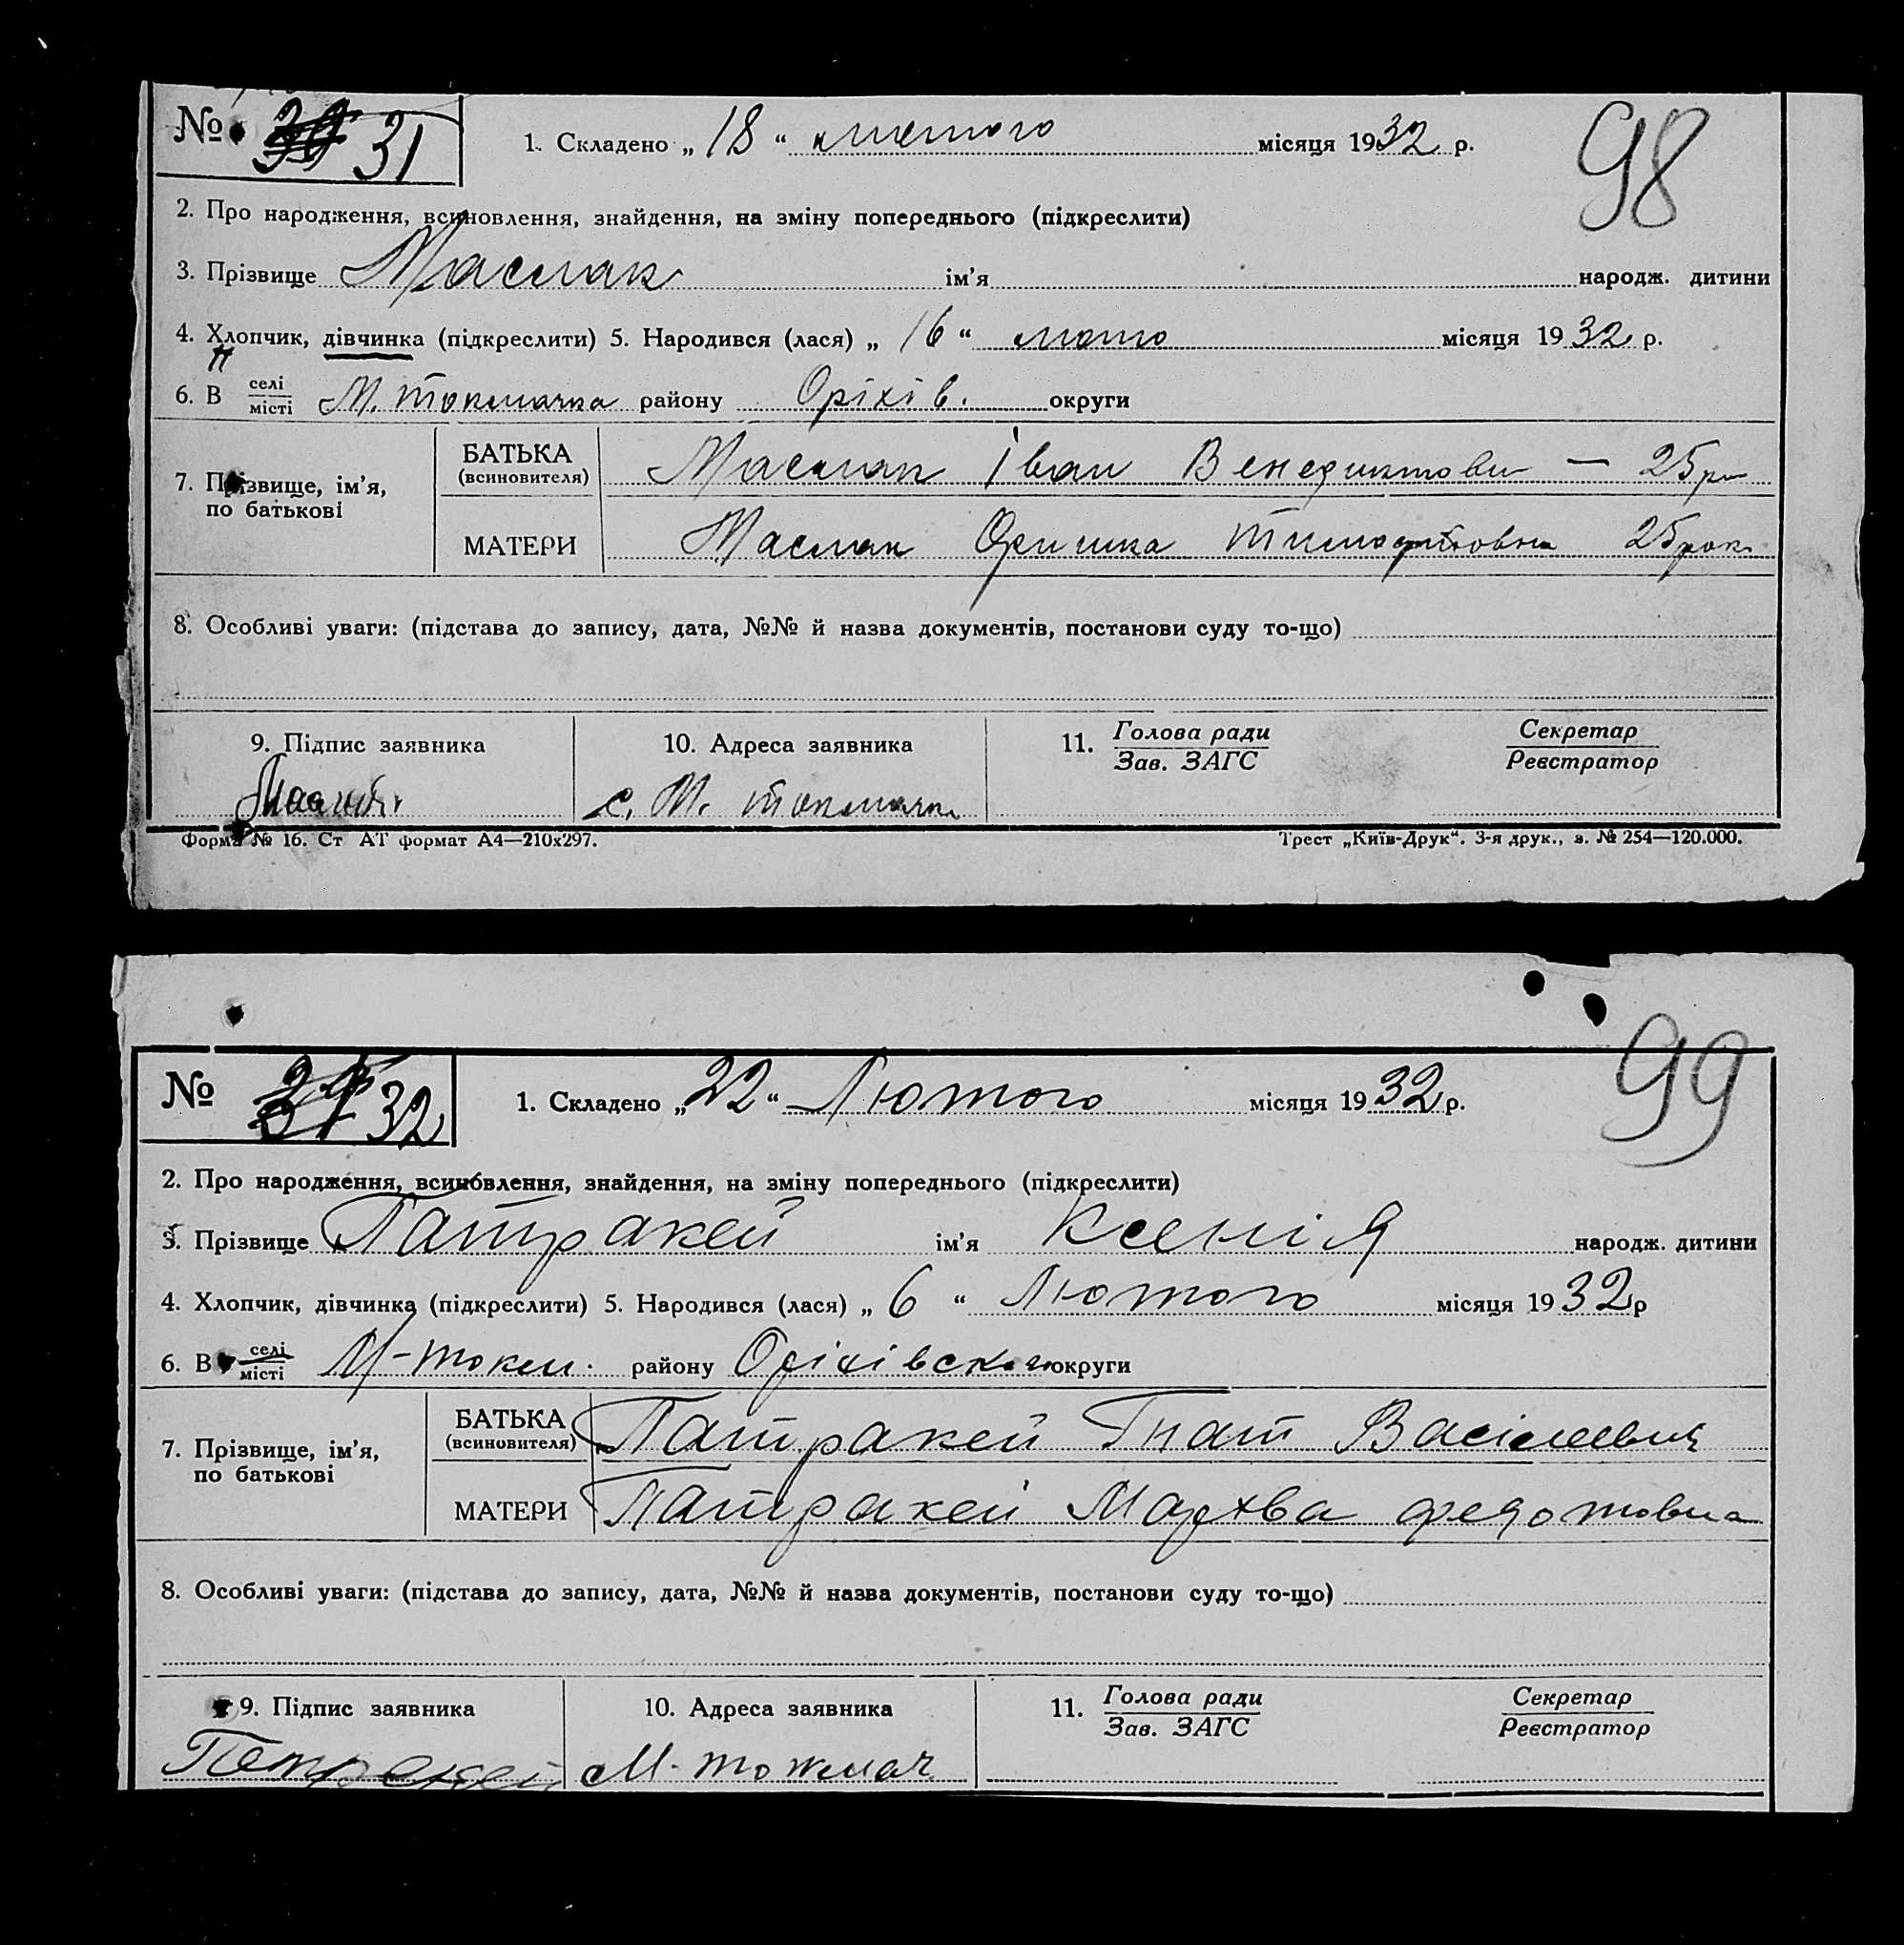 98
№ 31 1. Складено „18“ лютого місяця 1932 р.
2. Про народження, всиновлення, знайдення, на зміну попереднього (підкреслити)
3. Прізвище Маслак ім'я народж. дитини
4. Хлопчик, дівчинка (підкреслити) 5. Народився (лася) „16“ місяця 1932 р.
6. В селі
місті М. Токмачка району Оріхів. округи
7. Прізвище, ім'я,
по батькові
БАТЬКА
(всиновителя) Маслак Іван Венедиктови — 25
МАТЕРИ Маслак Оришка 25 рок
8. Особливі уваги: (підстава до запису, дата, №№ й назва документів, постанови суду то-що)
9. Підпис заявника 10. Адреса заявника 11. Голова ради Секретар
Зав. ЗАГС Реєстратор
с. М. Токмачка
Форма № 16. Ст АТ формат А4—210х297. Трест „Київ-Друк“. 3-я друк., з. № 254—120.000.
99
№ 32 1. Складено „22“ Лютого місяця 1932 р.
2. Про народження, всиновлення, знайдення, на зміну попереднього (підкреслити)
3. Прізвище Патракей ім'я Ксенія народж. дитини
4. Хлопчик, дівчинка (підкреслити) 5. Народився (лася) „6“ Лютого місяця 1932 р
6. В селі
місті М-Токм. району округи
7. Прізвище, ім'я,
по батькові
БАТЬКА
(всиновителя) Патракей Гнат Васілевич
МАТЕРИ Патракей Мархва Федотовна
8. Особливі уваги: (підстава до запису, дата, №№ й назва документів, постанови суду то-що)
9. Підпис заявника 10. Адреса заявника 11. Голова ради Секретар
Зав. ЗАГС Реєстратор
М-Токмач